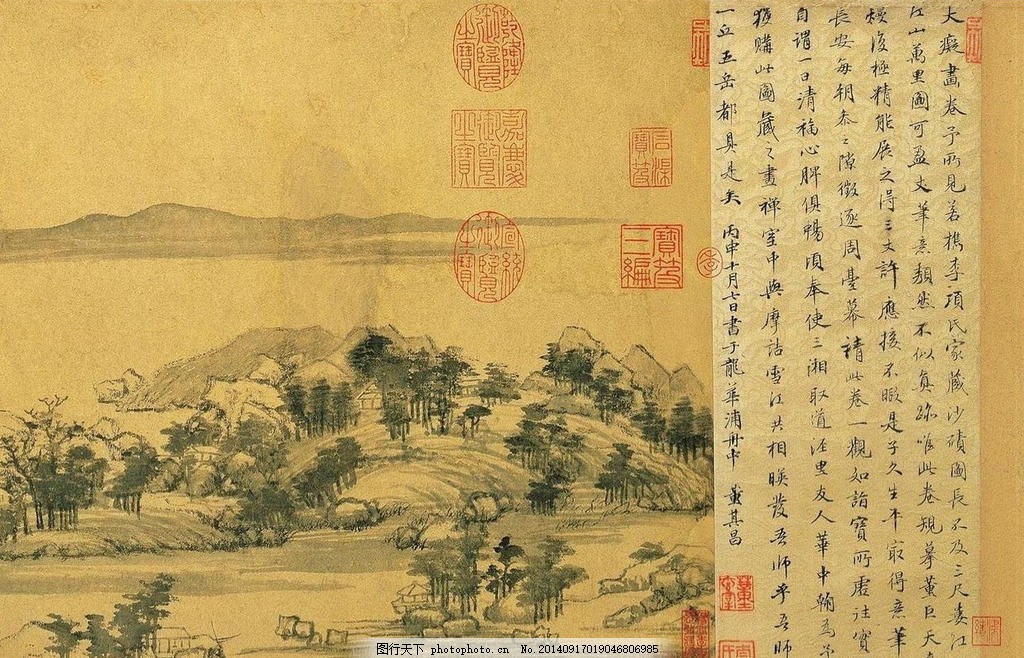 大癡畫卷予所見若檇李項氏家藏沙磧圖長不及三尺婁江
江山萬里圖可盈丈筆意頹然不似真跡唯此卷規摹董巨天
熳復極精能展之得三丈許應接不暇是子久生平最得意筆
長安每朝參之隙徵逐周臺幕請此卷一觀如詣寶所虛往實
自謂一日清福心脾俱暢頃奉使三湘取道涇里友人華中翰為
獲購此圖藏之畫禪室中與摩詰雪江共相暎發吾師乎吾師
一丘五岳都具是矣 丙申十月七日書于龍華浦舟中 董其昌
乾隆御覽之寶
嘉慶御覽之寶
宣統御覽之寶
石渠寶笈
寶笈三編
图行天下 photophoto.cn No.20140917019046806985